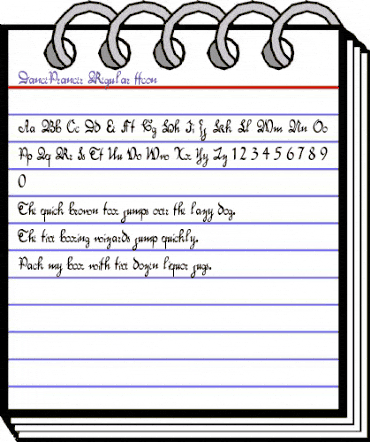 DancePrancer Regular Hoon
Aa Bb Cc Dd Ee Ff Gg Hh Ii Jj Kk Ll Mm Nn Oo
Pp Qq Rr Ss Tt Uu Vv Ww Xx Yy Zz 1 2 3 4 5 6 7 8 9
0
The quick brown fox jumps over the lazy dog.
The five boxing wizards jump quickly.
Pack my box with five dozen liquor jugs.